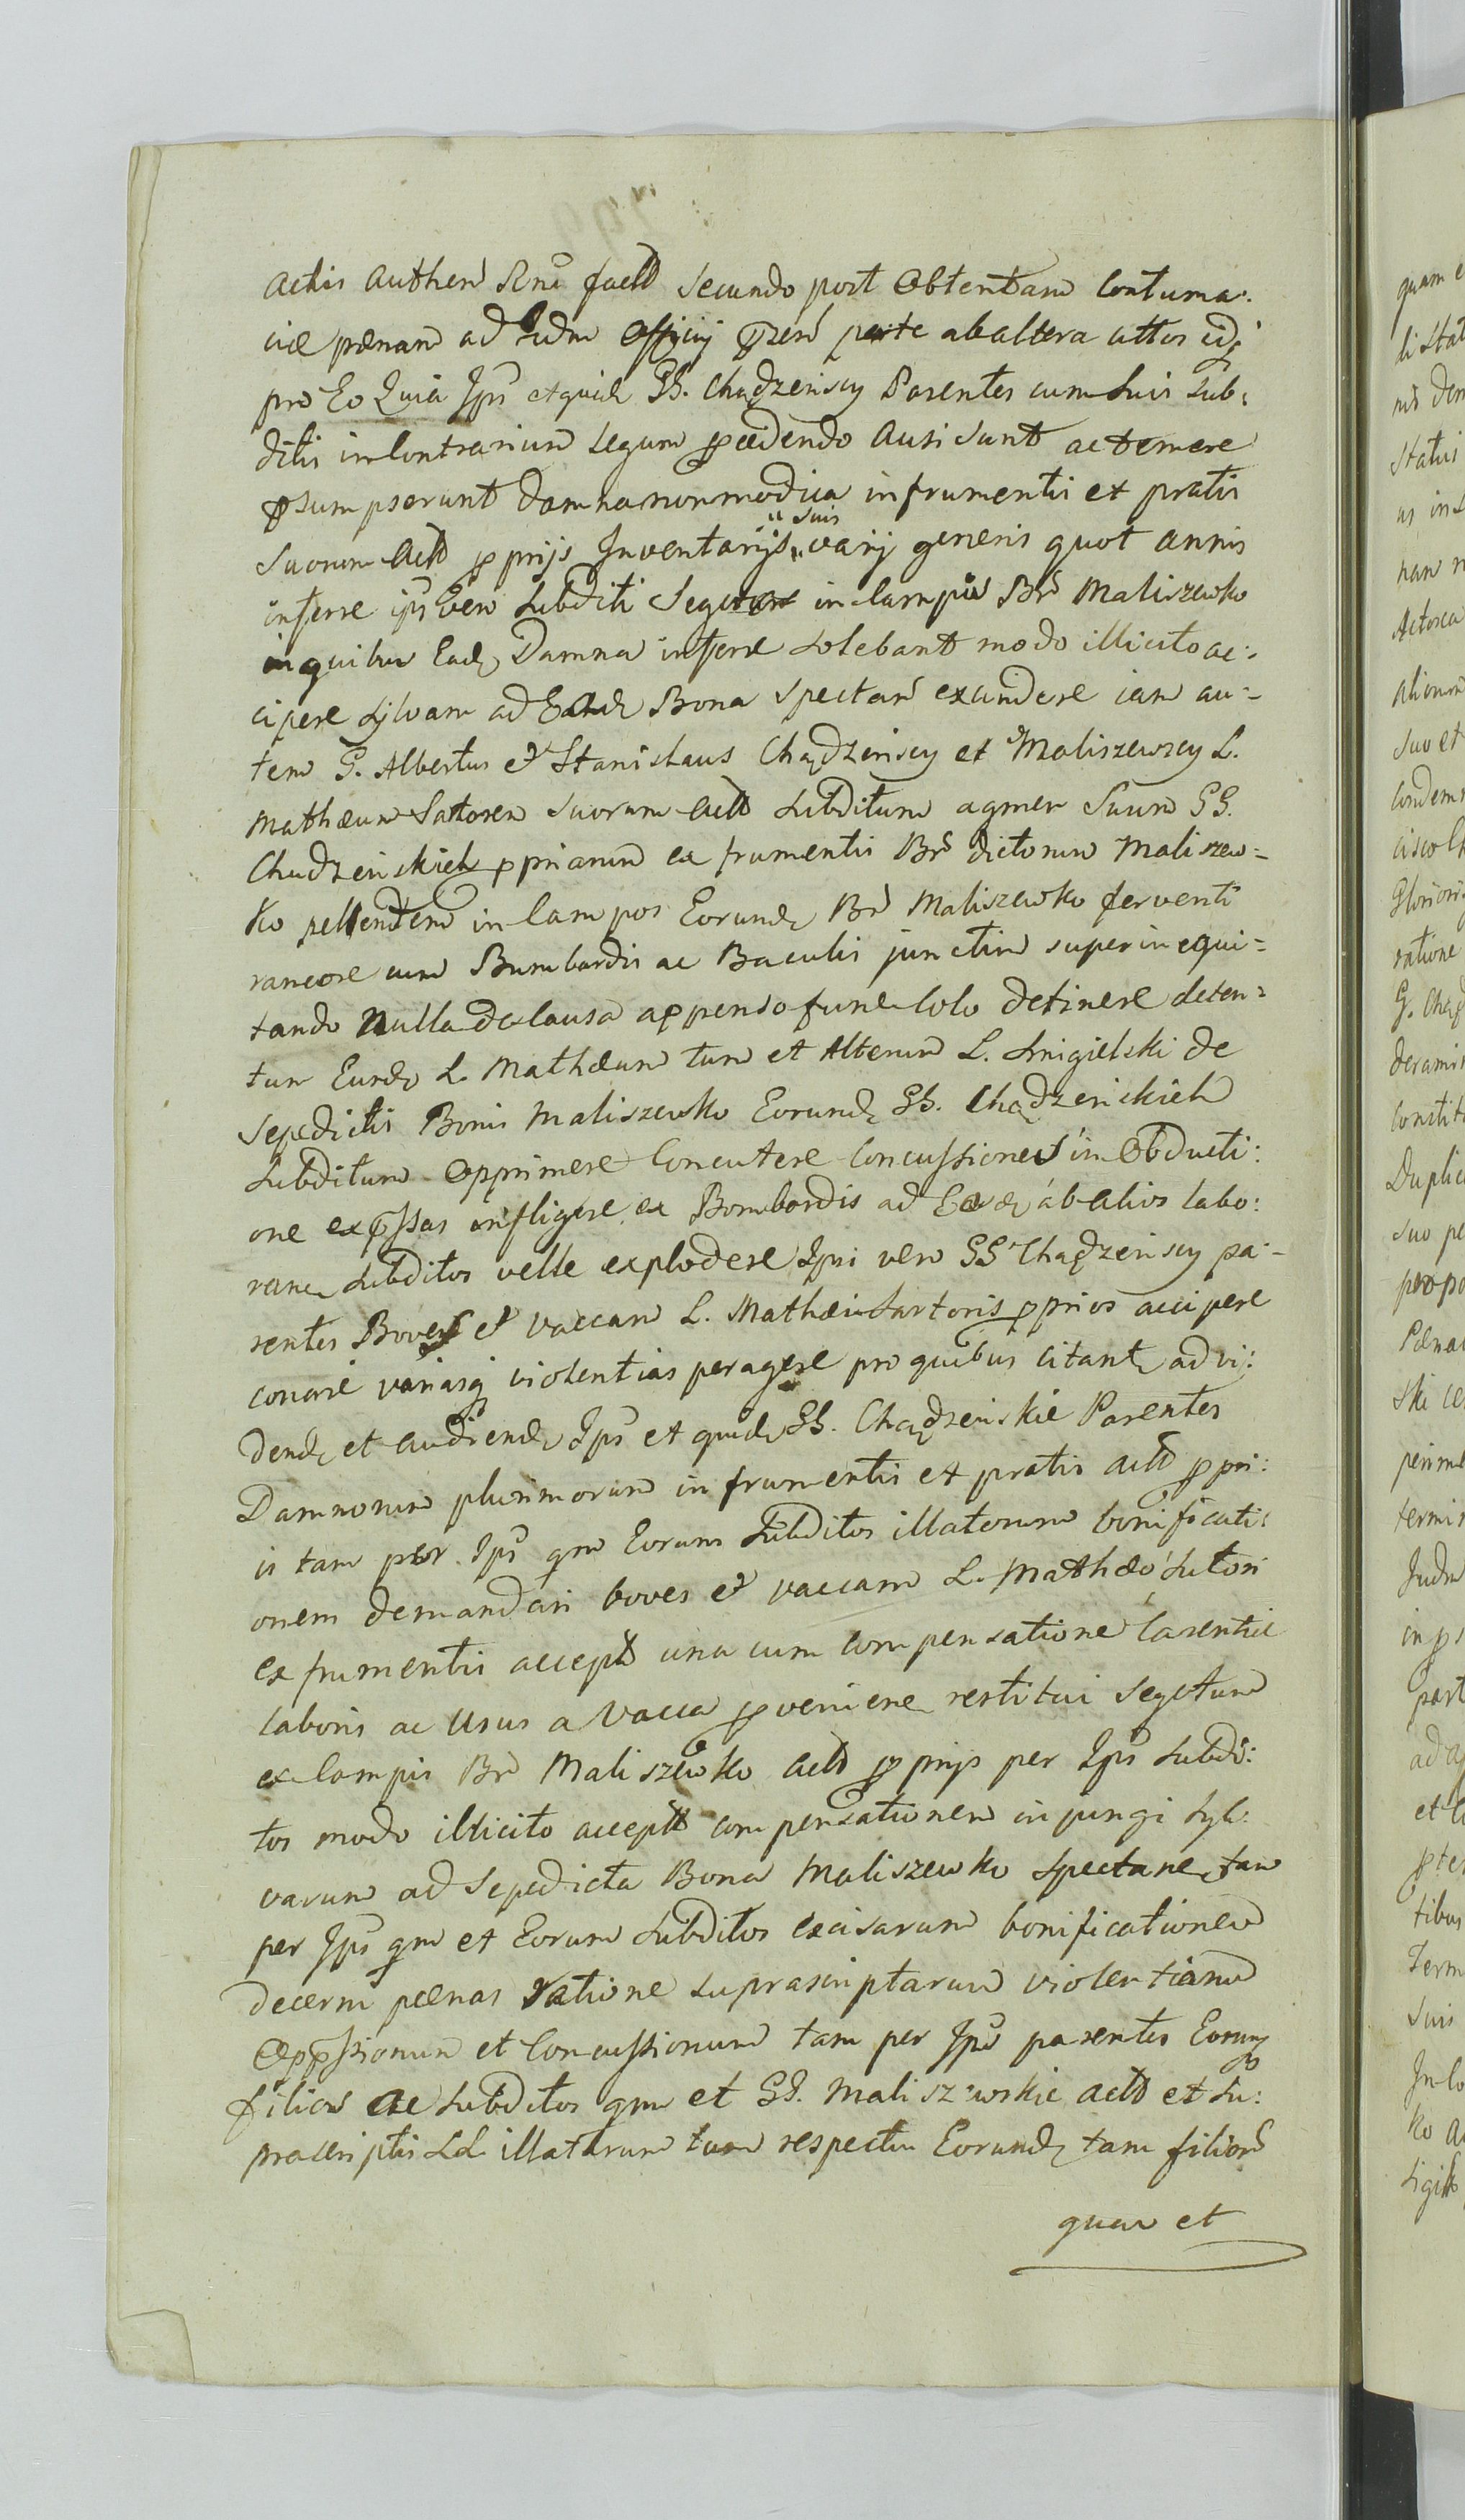 Actis Authen Rni factt Secundo post Obtentam Contuma:
ciæ pænam ad Iudm Officij pzen parte ab altera attos idq
pro Eo Quia Ips et quid GG. Chądzeńscy Parentes cum Suis Sub:
ditis in Contrarium Legum pcedendo Ausi Sunt ac temere
psumpserunt Damna non modica in frumentis et pratis
Suorum Actt pprijs Inventarijs "suis" varij generis quot annis
inferre ips Vero Subditi Segetem in Campis Br Maliszewko
in quibus Ead Damna inferre Solebant modo illicito ac:
cipere Sylvam ad Eand Bona Spectan excindere iam au:
tem G. Albertus et Stanislaus Chądzeńscy et Maliszewscy L.
Mathæum Sartorem Suorum Actt Subditum agmen Suum GG.
Chudzeńskich pprianum ex frumentis Br dictorum Maliszew=
ko pellentem in Campos Eorund Br Maliszewko ferventi
rancore cum Bumbardis ac Baculis junctim super inequi=
tando Nulla de Causa appenso fune Colo detinere deten=
tum Eund L. Mathæum tum et Alterum L. Smigielski de
Sepedictis Bonis Maliszewko Eorund GG. Chądzeńskich
Subditum Opprimere Concutere Concussiones in Obducti:
one expssas infligere ex Bombardis ad Eosd ab alios labo:
ran Subditos velle explodere Ipsi vero GG Chądzeńscy pa:
rentes Boves et vaccam L. Mathæi Sartoris pprios accipere
conari variasq violentias peragere pro quibus Citant ad vi:
dend et audiend Ips et quid GG. Chądzeńskie Parentes
Damnorum plurimorum in frumentis et pratis Actt ppri:
is tam per Ips qm Eorum Subditos illatorum bonificati:
onem demandari boves et vaccam L. Mathæo Sutori
ex frumentis accept una cum Compensatione Carentiæ
laboris ac Usus a Vacca pvenien restitui Segetum
ex Campis Br Maliszewko Actt pprijs per Ips Subdi:
tos modo illicito accept compensationem injungi Syl:
varum ad Sepedicta Bona Maliszewko Spectan tam
per Ips qm et Eorum Subditos excisarum bonificationem
decerni pænas ratione Suprascriptarum violentiarum
Oppssionum et Concussionum tam per Ips parentes Eorumq
filios ac Subditos qm et GG. Maliszewskie Actt et Su:
prascriptis LL illatarum tum respectu Eorund tam filior
quam et